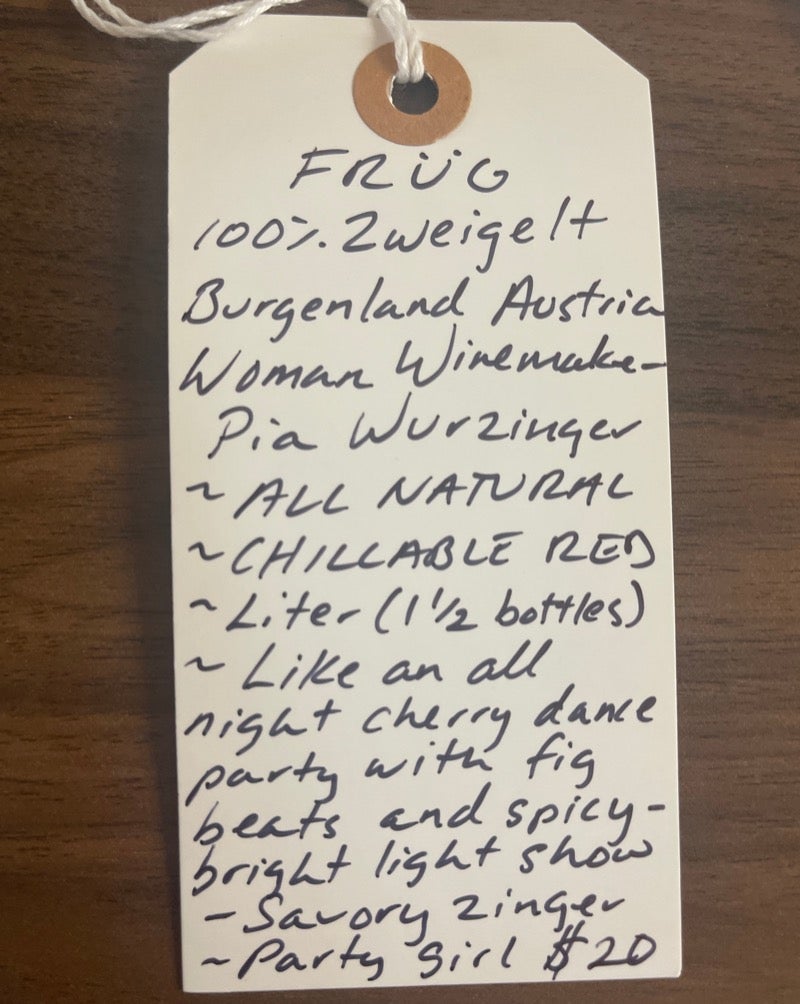 FRÜG
100% Zweigelt
Burgenland Austria
Woman Winemaker
Pia Wurzinger
~ ALL NATURAL
~ CHILLABLE RED
~ Liter (1 1/2 bottles)
~ Like an all
night cherry dance
party with fig
beats and spicy-
bright light show
- Savory zinger
~ Party girl $20